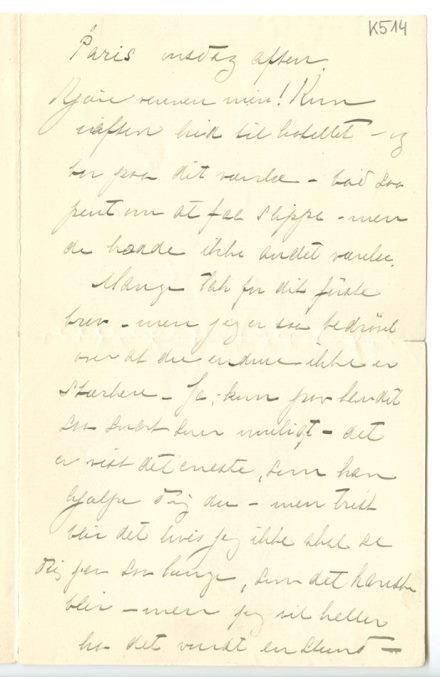 K514
Paris onsdag aften.
Kjære vennen min! Kom
iaften hid til hotellet – og
bor paa dit værelse – bad saa
pent om at faa slippe – men
de havde ikke andet værelse.
Mange tak for dit første
brev – men jeg er saa bedrøvet
over at du endnu ikke er
stærkere – Ja, kom paa landet
saa snart som muligt – det
er vist det eneste, som kan
hjælpe dig du – men trist
blir det hvis jeg ikke skal se
dig paa saa længe, som det kanske
blir – men jeg vil heller
ha det vondt en stund –